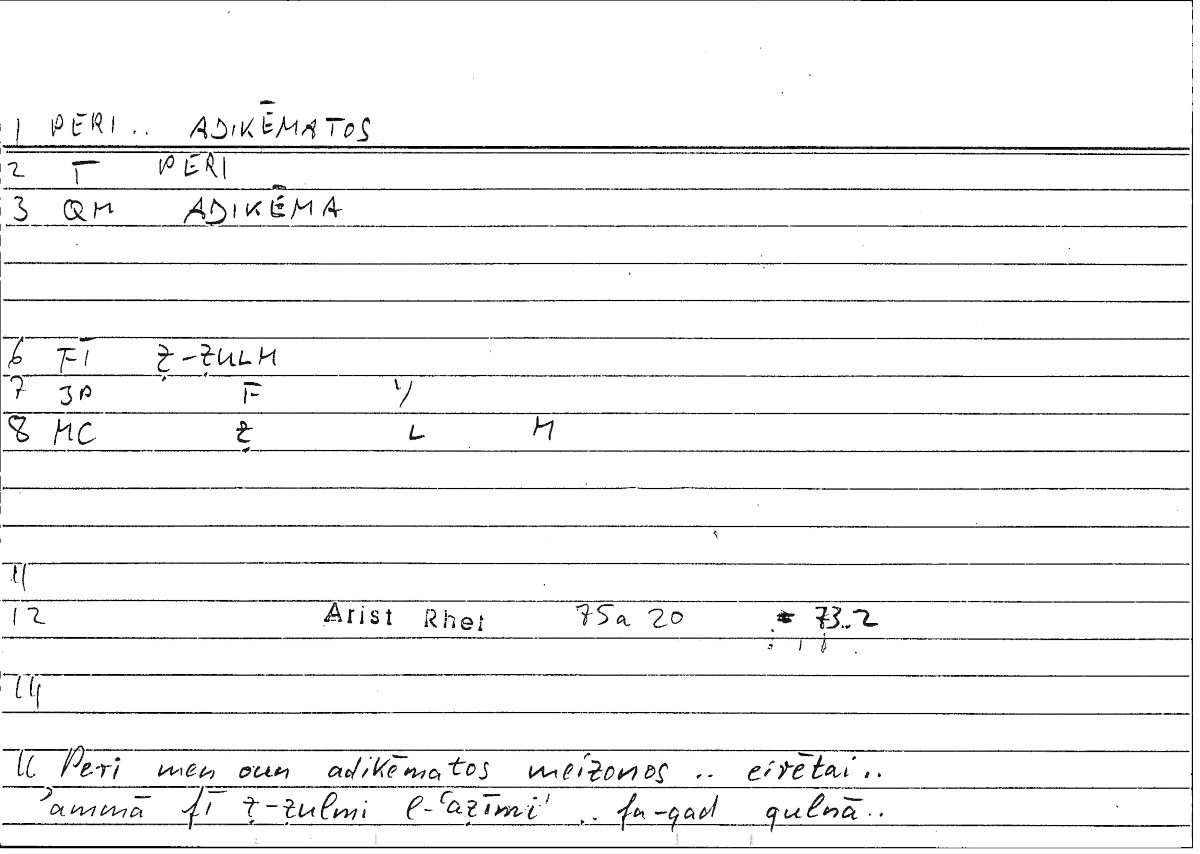 1 PERI .. ADIKĒMATOS
2 T PERI
3 QM ADIKĒMA
6 FĪ Ẓ-ẒULM
7 3P F Y
8 MC Ẓ L M
11
12 Arist Rhet 75a 20 = 73.2
14
Peri men oun adikēmatos meizonos .. eirētai ..
'ammā fī ẓ-ẓulmi l-ʿaẓīmi .. fa-qad qulnā ..